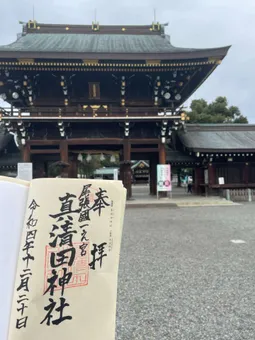 奉拝
尾張國一之宮
真清田神社
令和四年十二月二十日